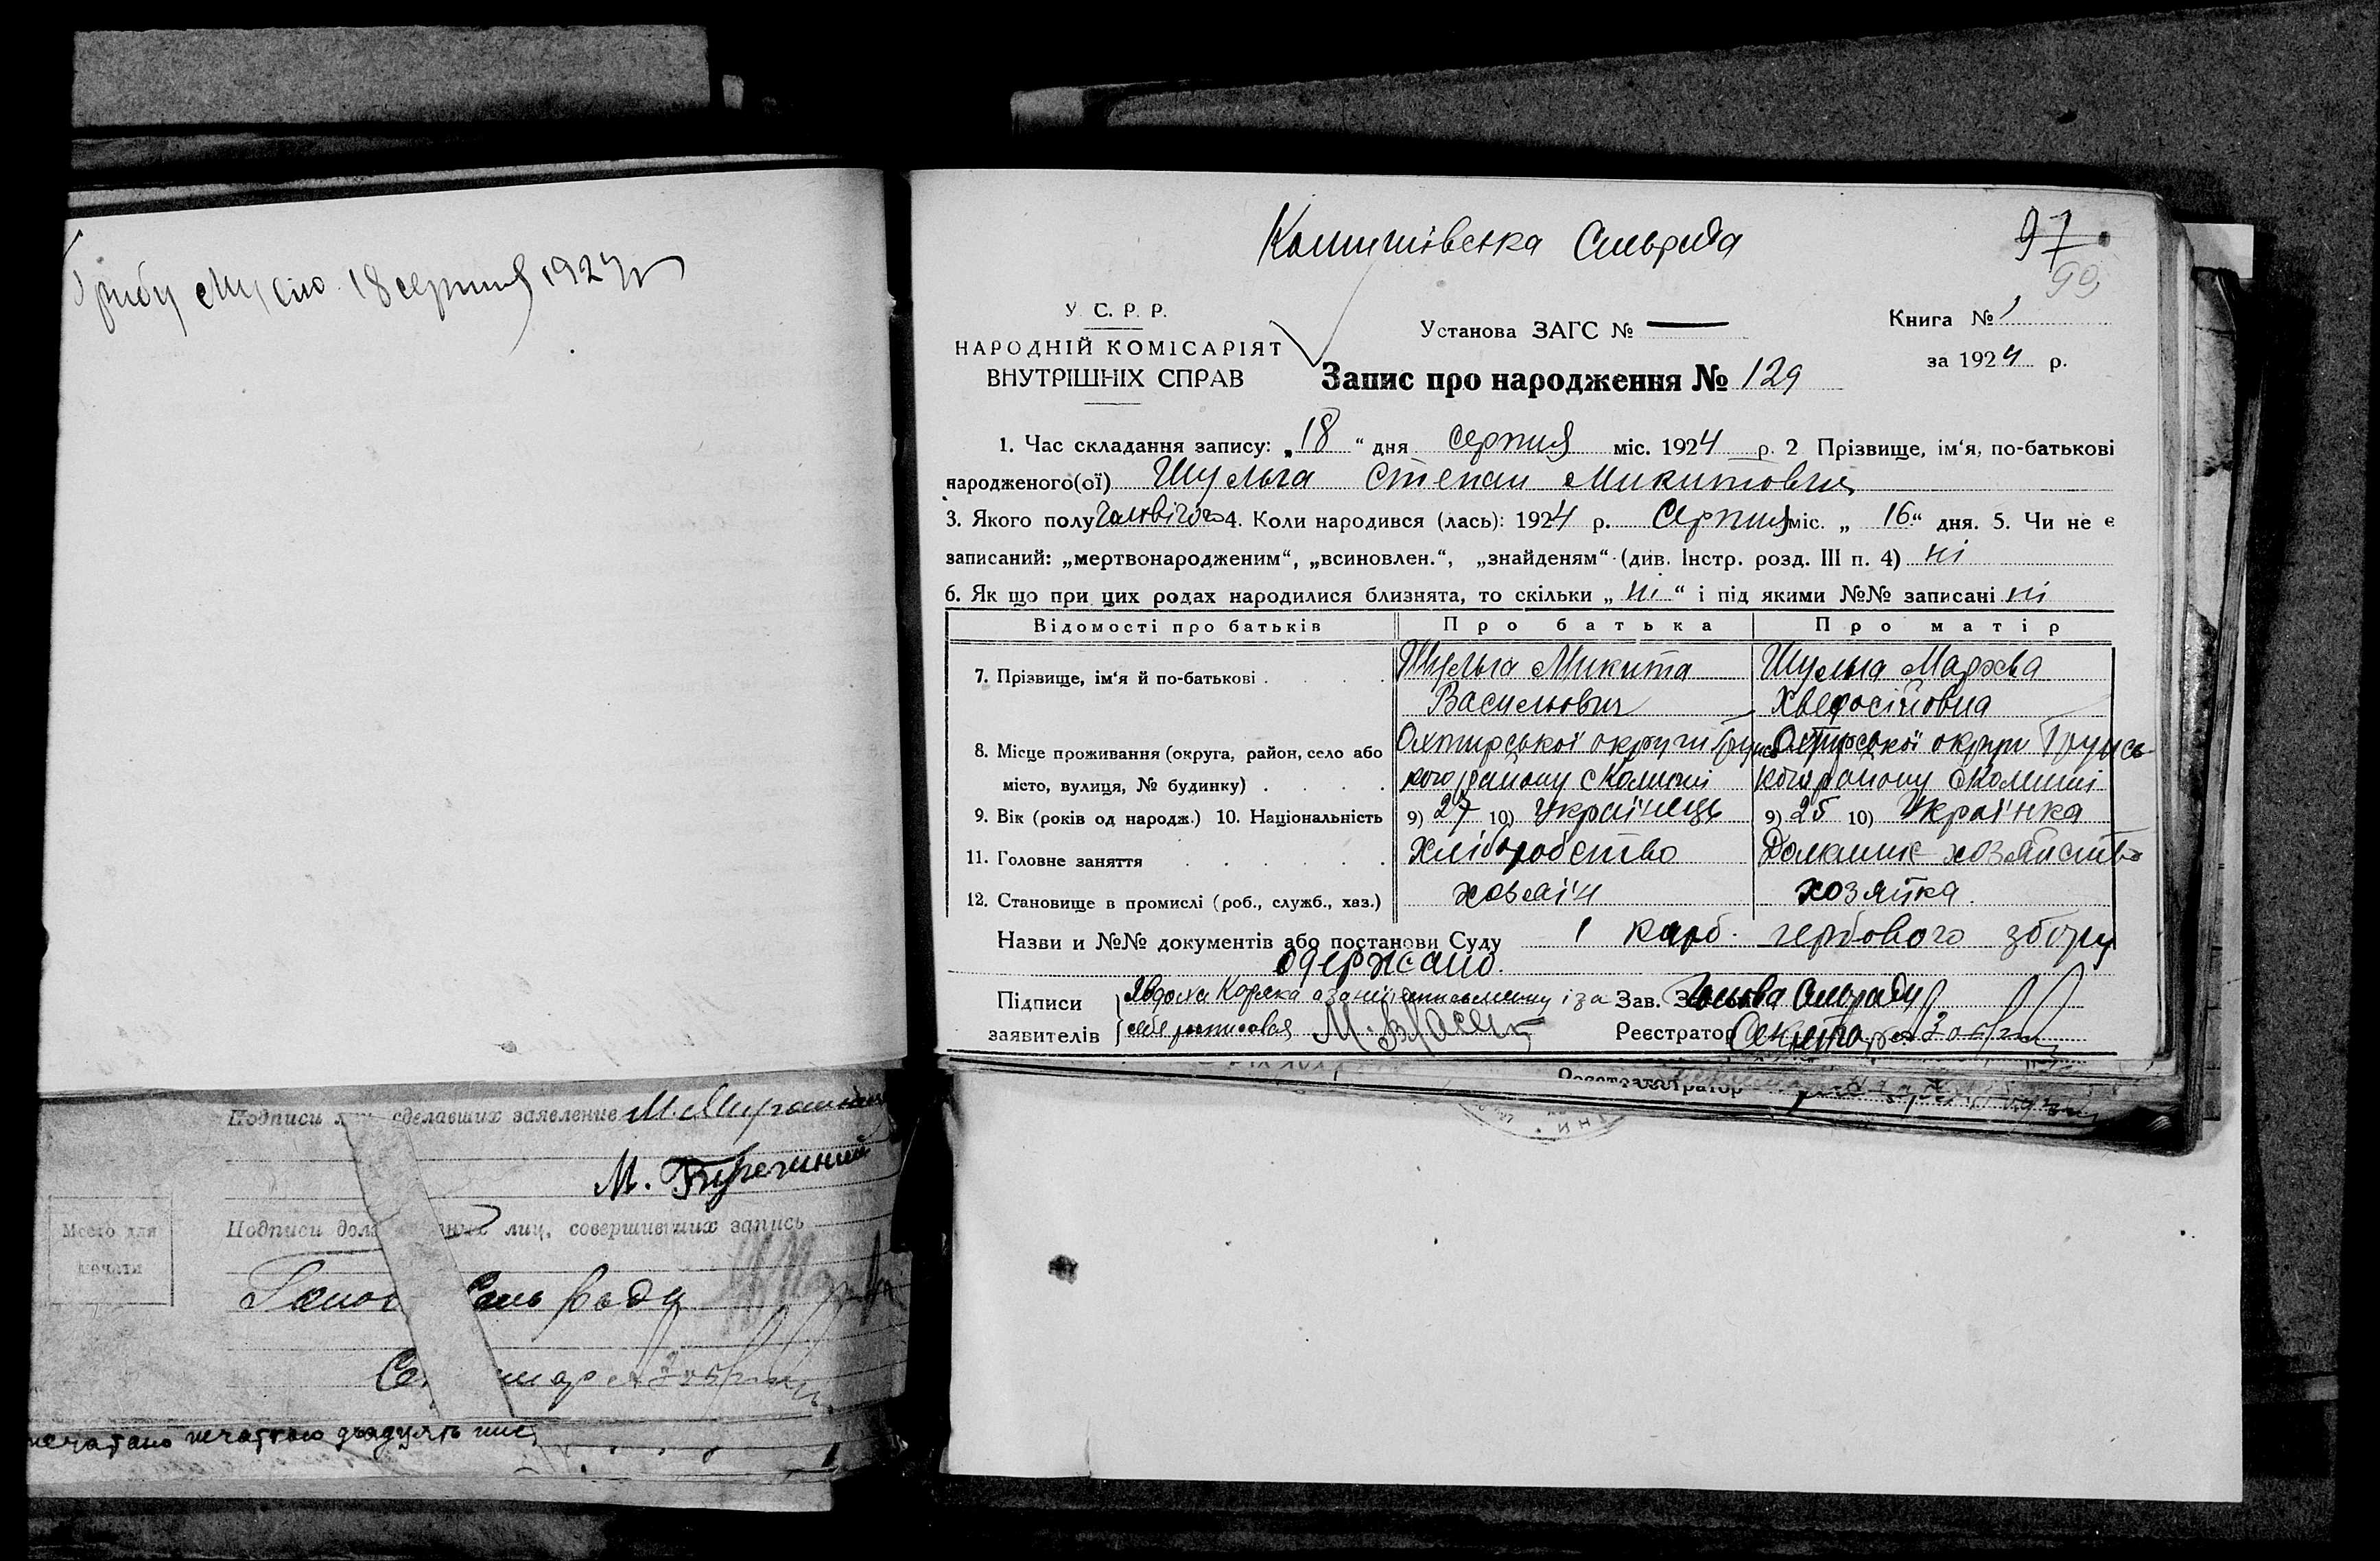 18 серпня 1924 р
Комишівська Сільрада
97
99
У. С. Р. Р.
НАРОДНІЙ КОМІСАРІЯТ
ВНУТРІШНІХ СПРАВ
Установа ЗАГС № —
Книга № 1
за 1924 р.
Запис про народження № 129
1. Час складання запису: „18“ дня серпня міс. 1924 р. 2 Прізвище, ім‘я, по-батькові
народженого(ої) Шульга Степан Микитович
3. Якого полу чоловічого 4. Коли народився (лась): 1924 р. Серпня міс. „16“ дня. 5. Чи не є
записаний: „мертвонародженим“, „всиновлен.“, „знайденям“ (див. Інстр. розд. III п. 4) ні
6. Як що при цих родах народилися близнята, то скільки „ні“ і під якими №№ записані ні
Відомості про батьків Про батька Про матір
7. Прізвище, ім‘я й по-батькові Шульга Микита Шульга Мархва
Васильович Хведосіїовна
8. Місце проживання (округа, район, село або Охтирської округи Охтирської округи Грунсь
місто, вулиця, № будинку) кого району с Комиші кого району с Комиші
9. Вік (років од народж.) 10. Національність 9) 27 10) Українець 9) 25 10) Українка
11. Головне заняття Хліборобство Домашнє хозяйство
12. Становище в промислі (роб., служб., хаз.) хозяїн хозяйка
Назви и №№ документів або постанови Суду 1 карб. гербового збору
одержано.
Підписи Явдоха за Зав. Голова Сільради
заявителів себя росписовая М. Реєстратор Секретар
Реєстратор
Подписи лиц сделавших заявление М.
М.
Место для
печати
Подписи долж ных лиц, совершивших запись
Голов Сіль Ради
Се тар
печатано печаткою двадцять